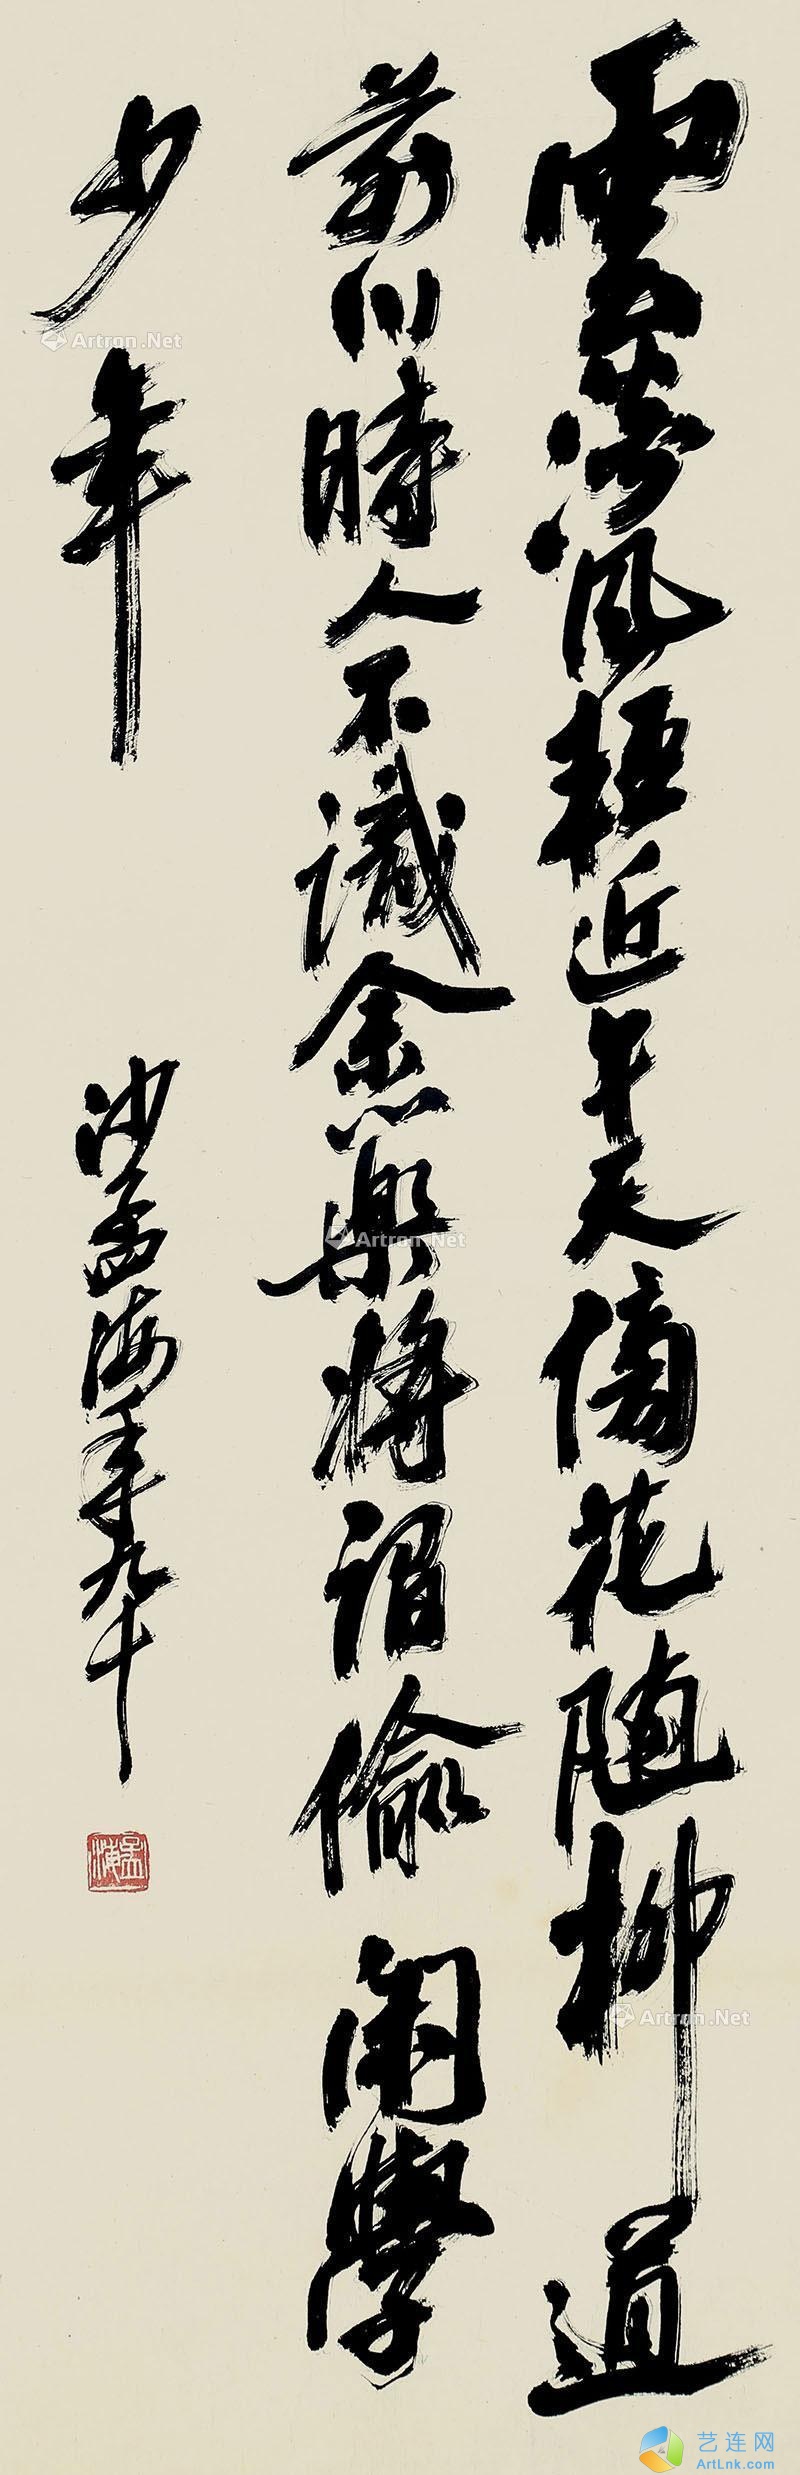 雲淡風輕近午天傍花隨柳過
前川時人不識余心樂將謂偷閑學
少年
沙孟海年九十
孟海
Artron.Net
Artron.Net
Artron.Net
艺连网
ArtLnk.com